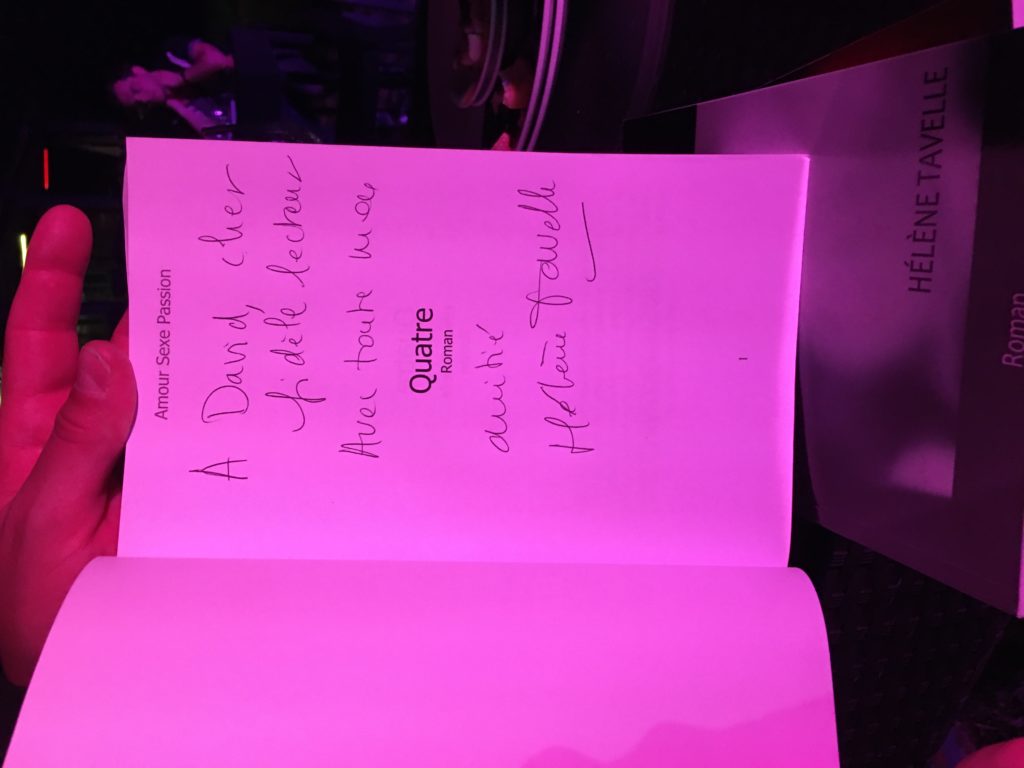 Amour Sexe Passion
A David, cher
fidèle lecteur
Avec toute mon
Quatre
Roman
amitié
Hélène Tavelle
1
HÉLÈNE TAVELLE
Roman